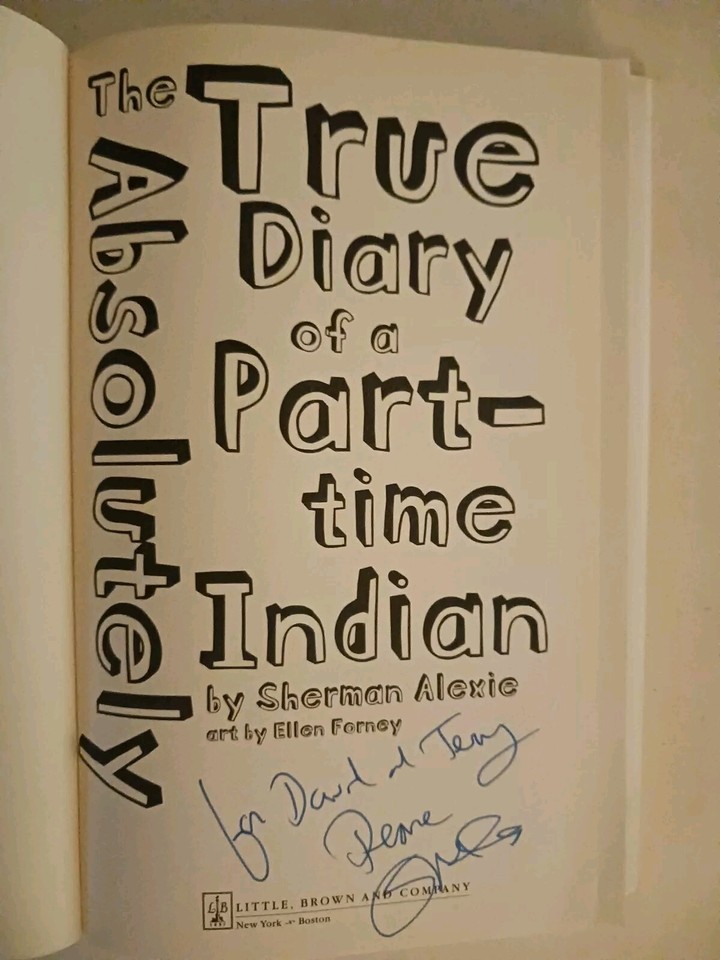 The
Absolutely
True
Diary
of a
Part-
time
Indian
by Sherman Alexie
art by Ellen Forney
for David
LB
LITTLE, BROWN AND COMPANY
New York Boston